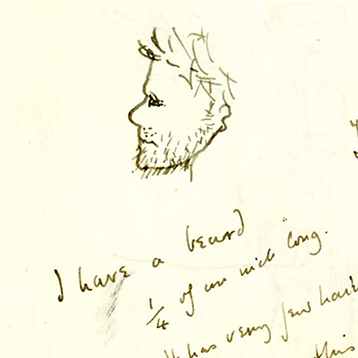 I have a beard
1/4 of an inch long.
It has very few hairs
this